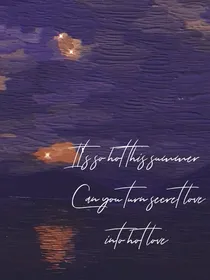 It's so hot this summer
Can you turn secret love
into hot love